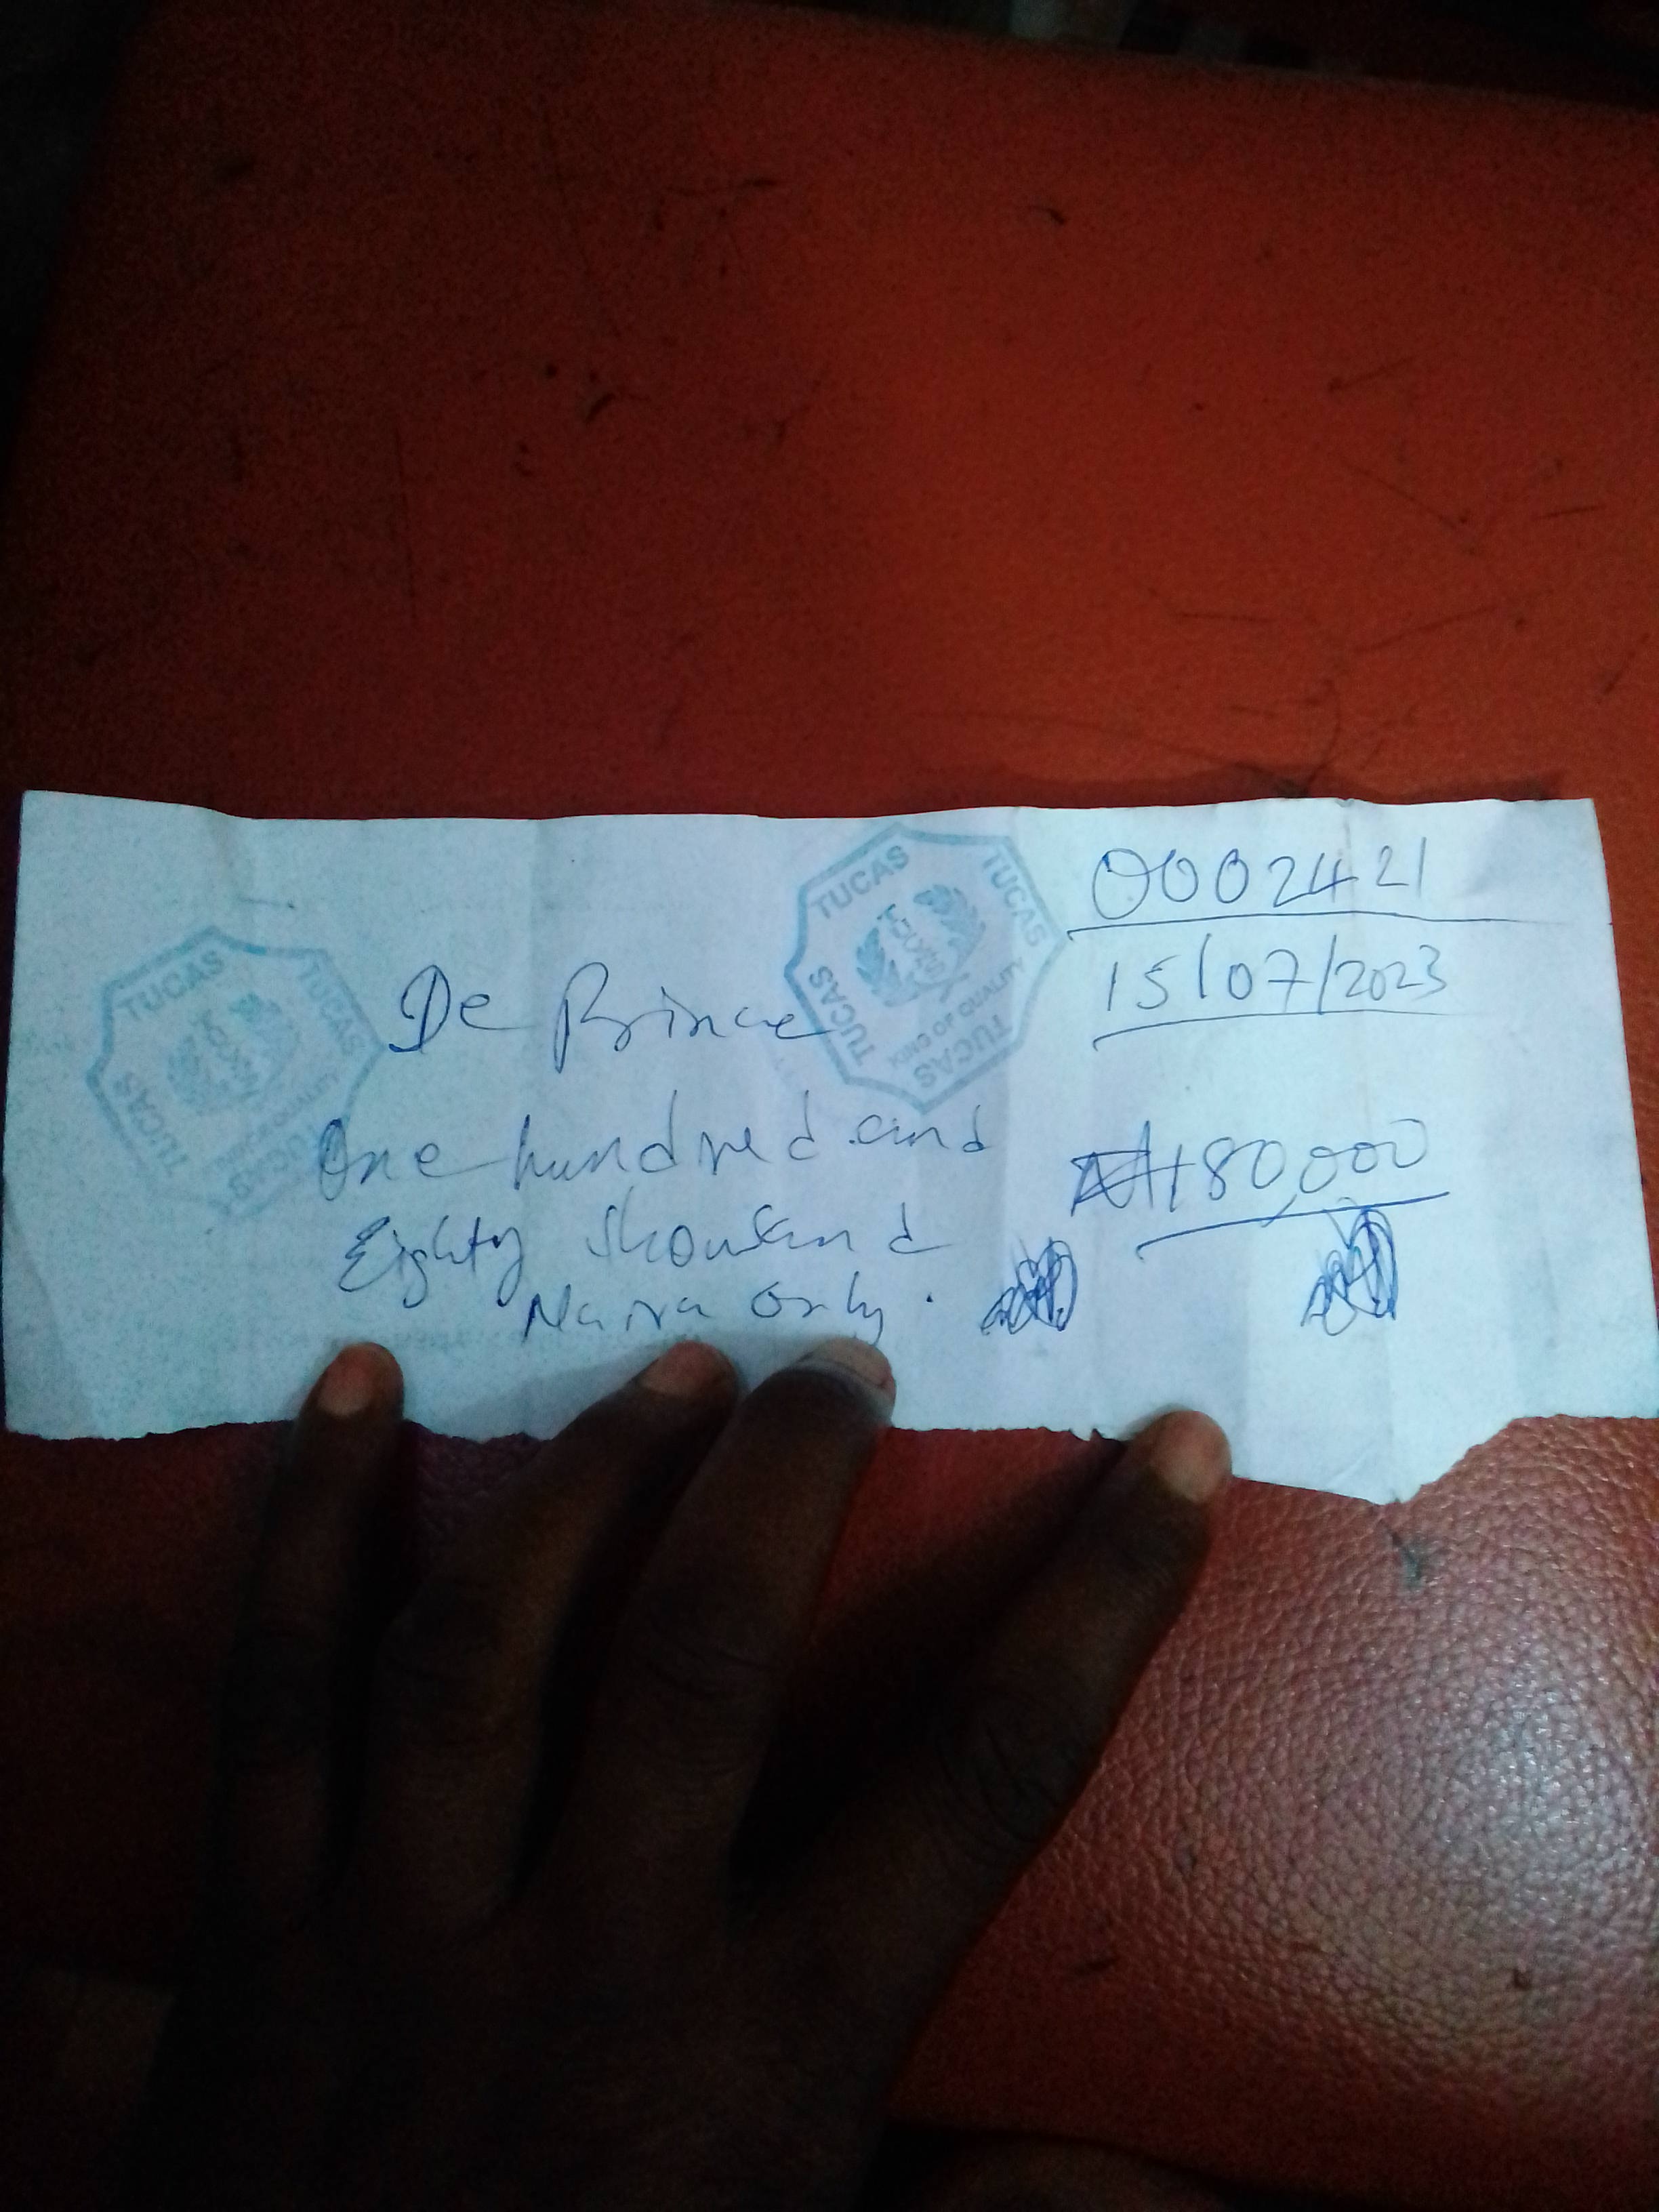 0002421
15/07/2023
De Prince
TUCAS
TUCAS
TUCAS
TUCAS
KING OF QUALITY
One hundred and
Eighty thousand
Naira Only.
₦180,000
TUCAS
TUCAS
TUCAS
TUCAS